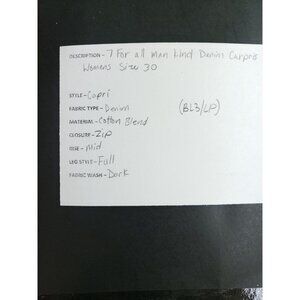 DESCRIPTION - 7 For all man kind Denim Carpris
Womens Size 30
STYLE - Capri
FABRIC TYPE - Denim (BL3/LP)
MATERIAL - Cotton Blend
CLOSURE - Zip
RISE - Mid
LEG STYLE - Full
FABRIC WASH - Dark